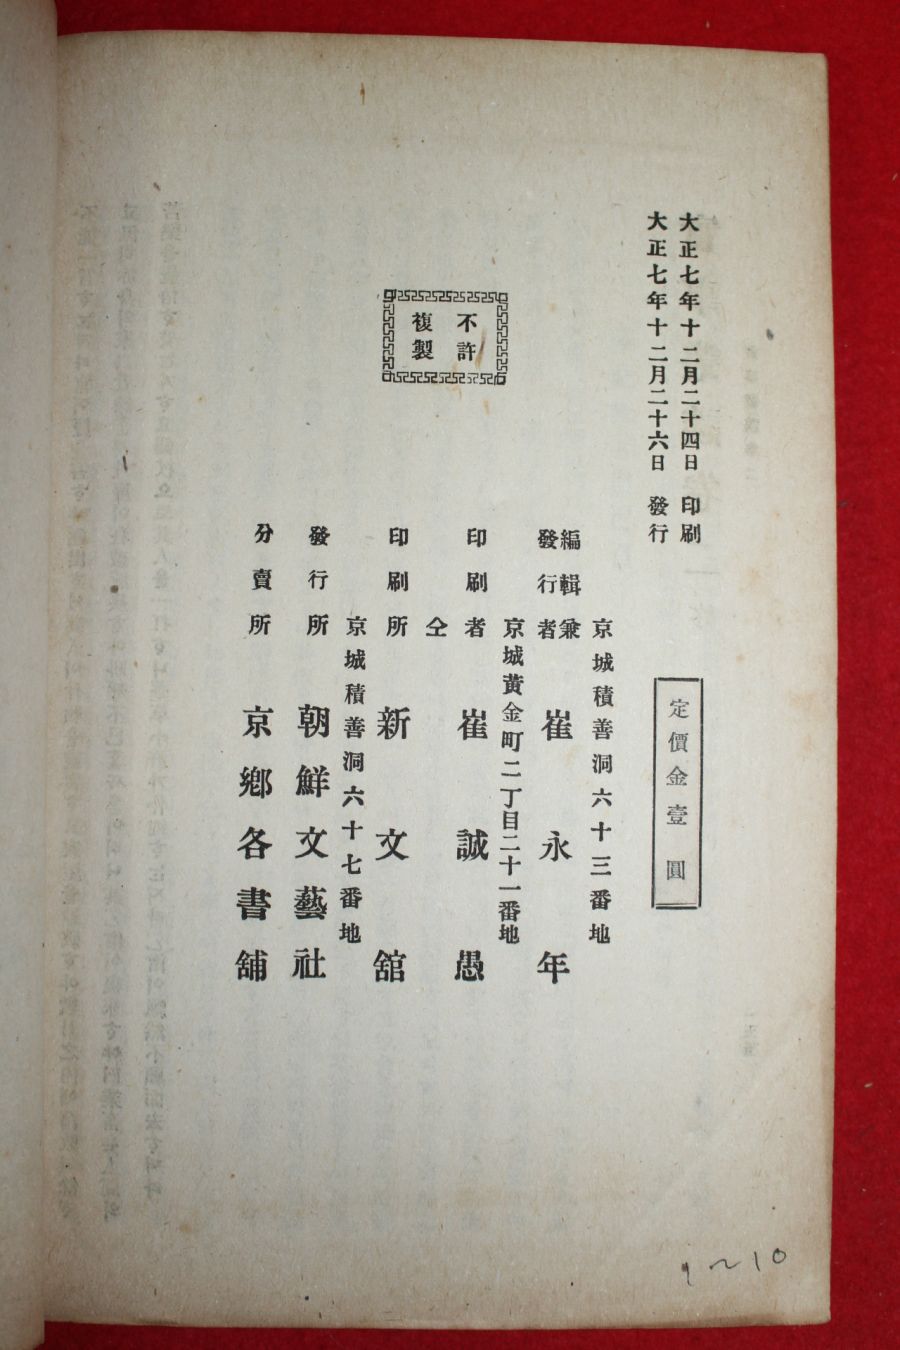 大正七年十二月二十四日 印刷
大正七年十二月二十六日 發行
定價金壹圓
不許
複製
京城積善洞六十三番地
編輯兼
發行者 崔永年
京城黃金町二丁目二十一番地
印刷者 崔誠愚
仝
印刷所 新文舘
京城積善洞六十七番地
發行所 朝鮮文藝社
分賣所 京鄕各書舖
1~10